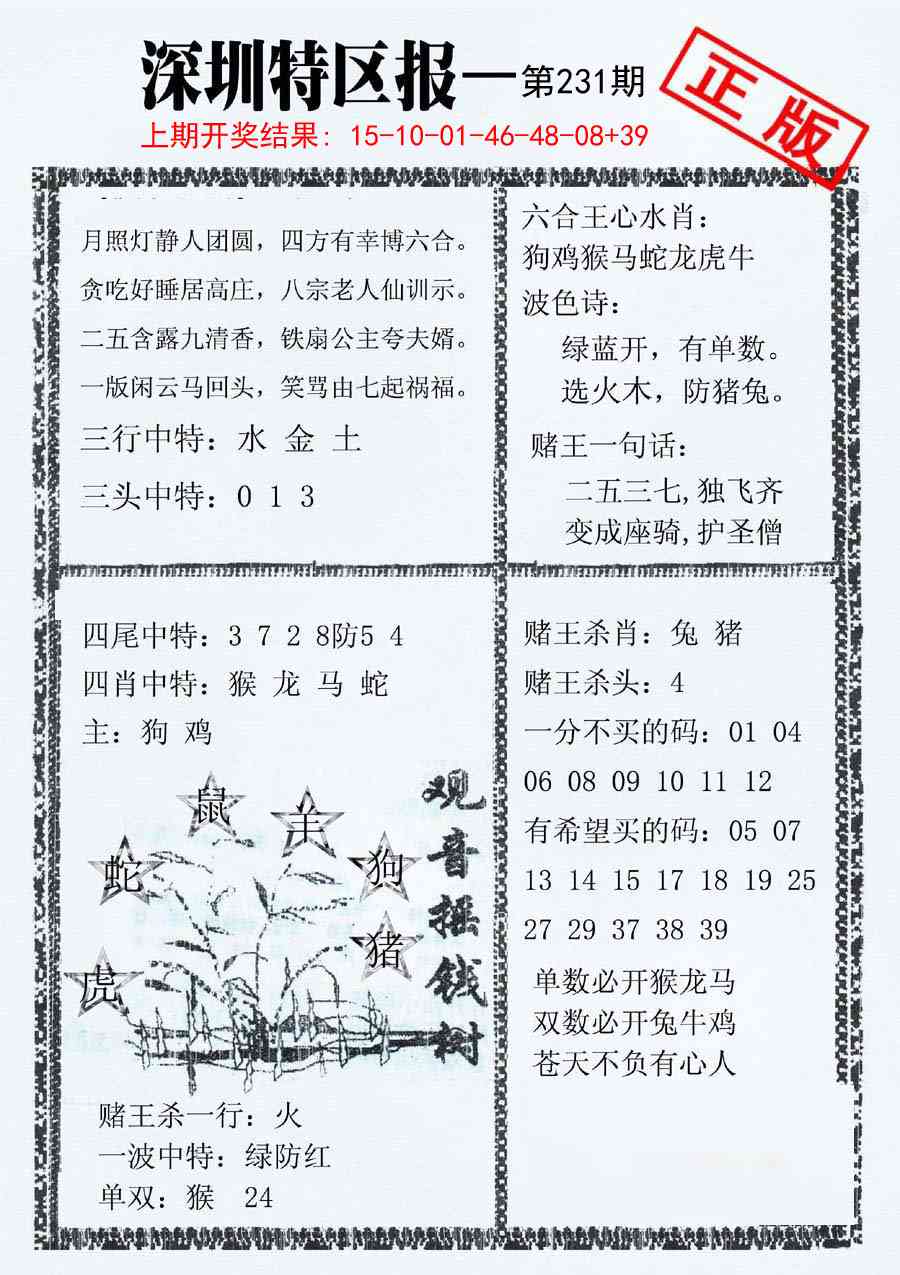 深圳特区报—第231期
正版
上期开奖结果：15-10-01-46-48-08+39
月照灯静人团圆，四方有幸博六合。
贪吃好睡居高庄，八宗老人仙训示。
二五含露九清香，铁扇公主夸夫婿。
一版闲云马回头，笑骂由七起祸福。
三行中特：水 金 土
三头中特：0 1 3
六合王心水肖：
狗鸡猴马蛇龙虎牛
波色诗：
绿蓝开，有单数。
选火木，防猪兔。
赌王一句话：
二五三七,独飞齐
变成座骑,护圣僧
四尾中特：3 7 2 8防5 4
四肖中特：猴 龙 马 蛇
主：狗 鸡
鼠
羊
蛇
狗
猪
虎
观音摇钱树
赌王杀一行：火
一波中特：绿防红
单双：猴 24
赌王杀肖：兔 猪
赌王杀头：4
一分不买的码：01 04
06 08 09 10 11 12
有希望买的码：05 07
13 14 15 17 18 19 25
27 29 37 38 39
单数必开猴龙马
双数必开兔牛鸡
苍天不负有心人